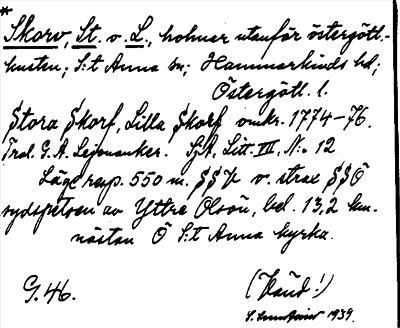 *
Skorv, St. o. L., holmar utanför östergötl.-
kusten; S:t Anna sn; Hammarkinds hd;
Östergötl. l.
Stora Skorf, Lilla Skorf omkr. 1774-76.
Trol. G. A. Lejonanker. SjA, Litt. VII, N:o 12
Läge resp. 550 m. SSV o. strax SSÖ
sydspetsen av Yttre Olsön, bel. 13,2 km.
nästan Ö S:t Anna kyrka.
G. 46.
(Känd!)
1939.